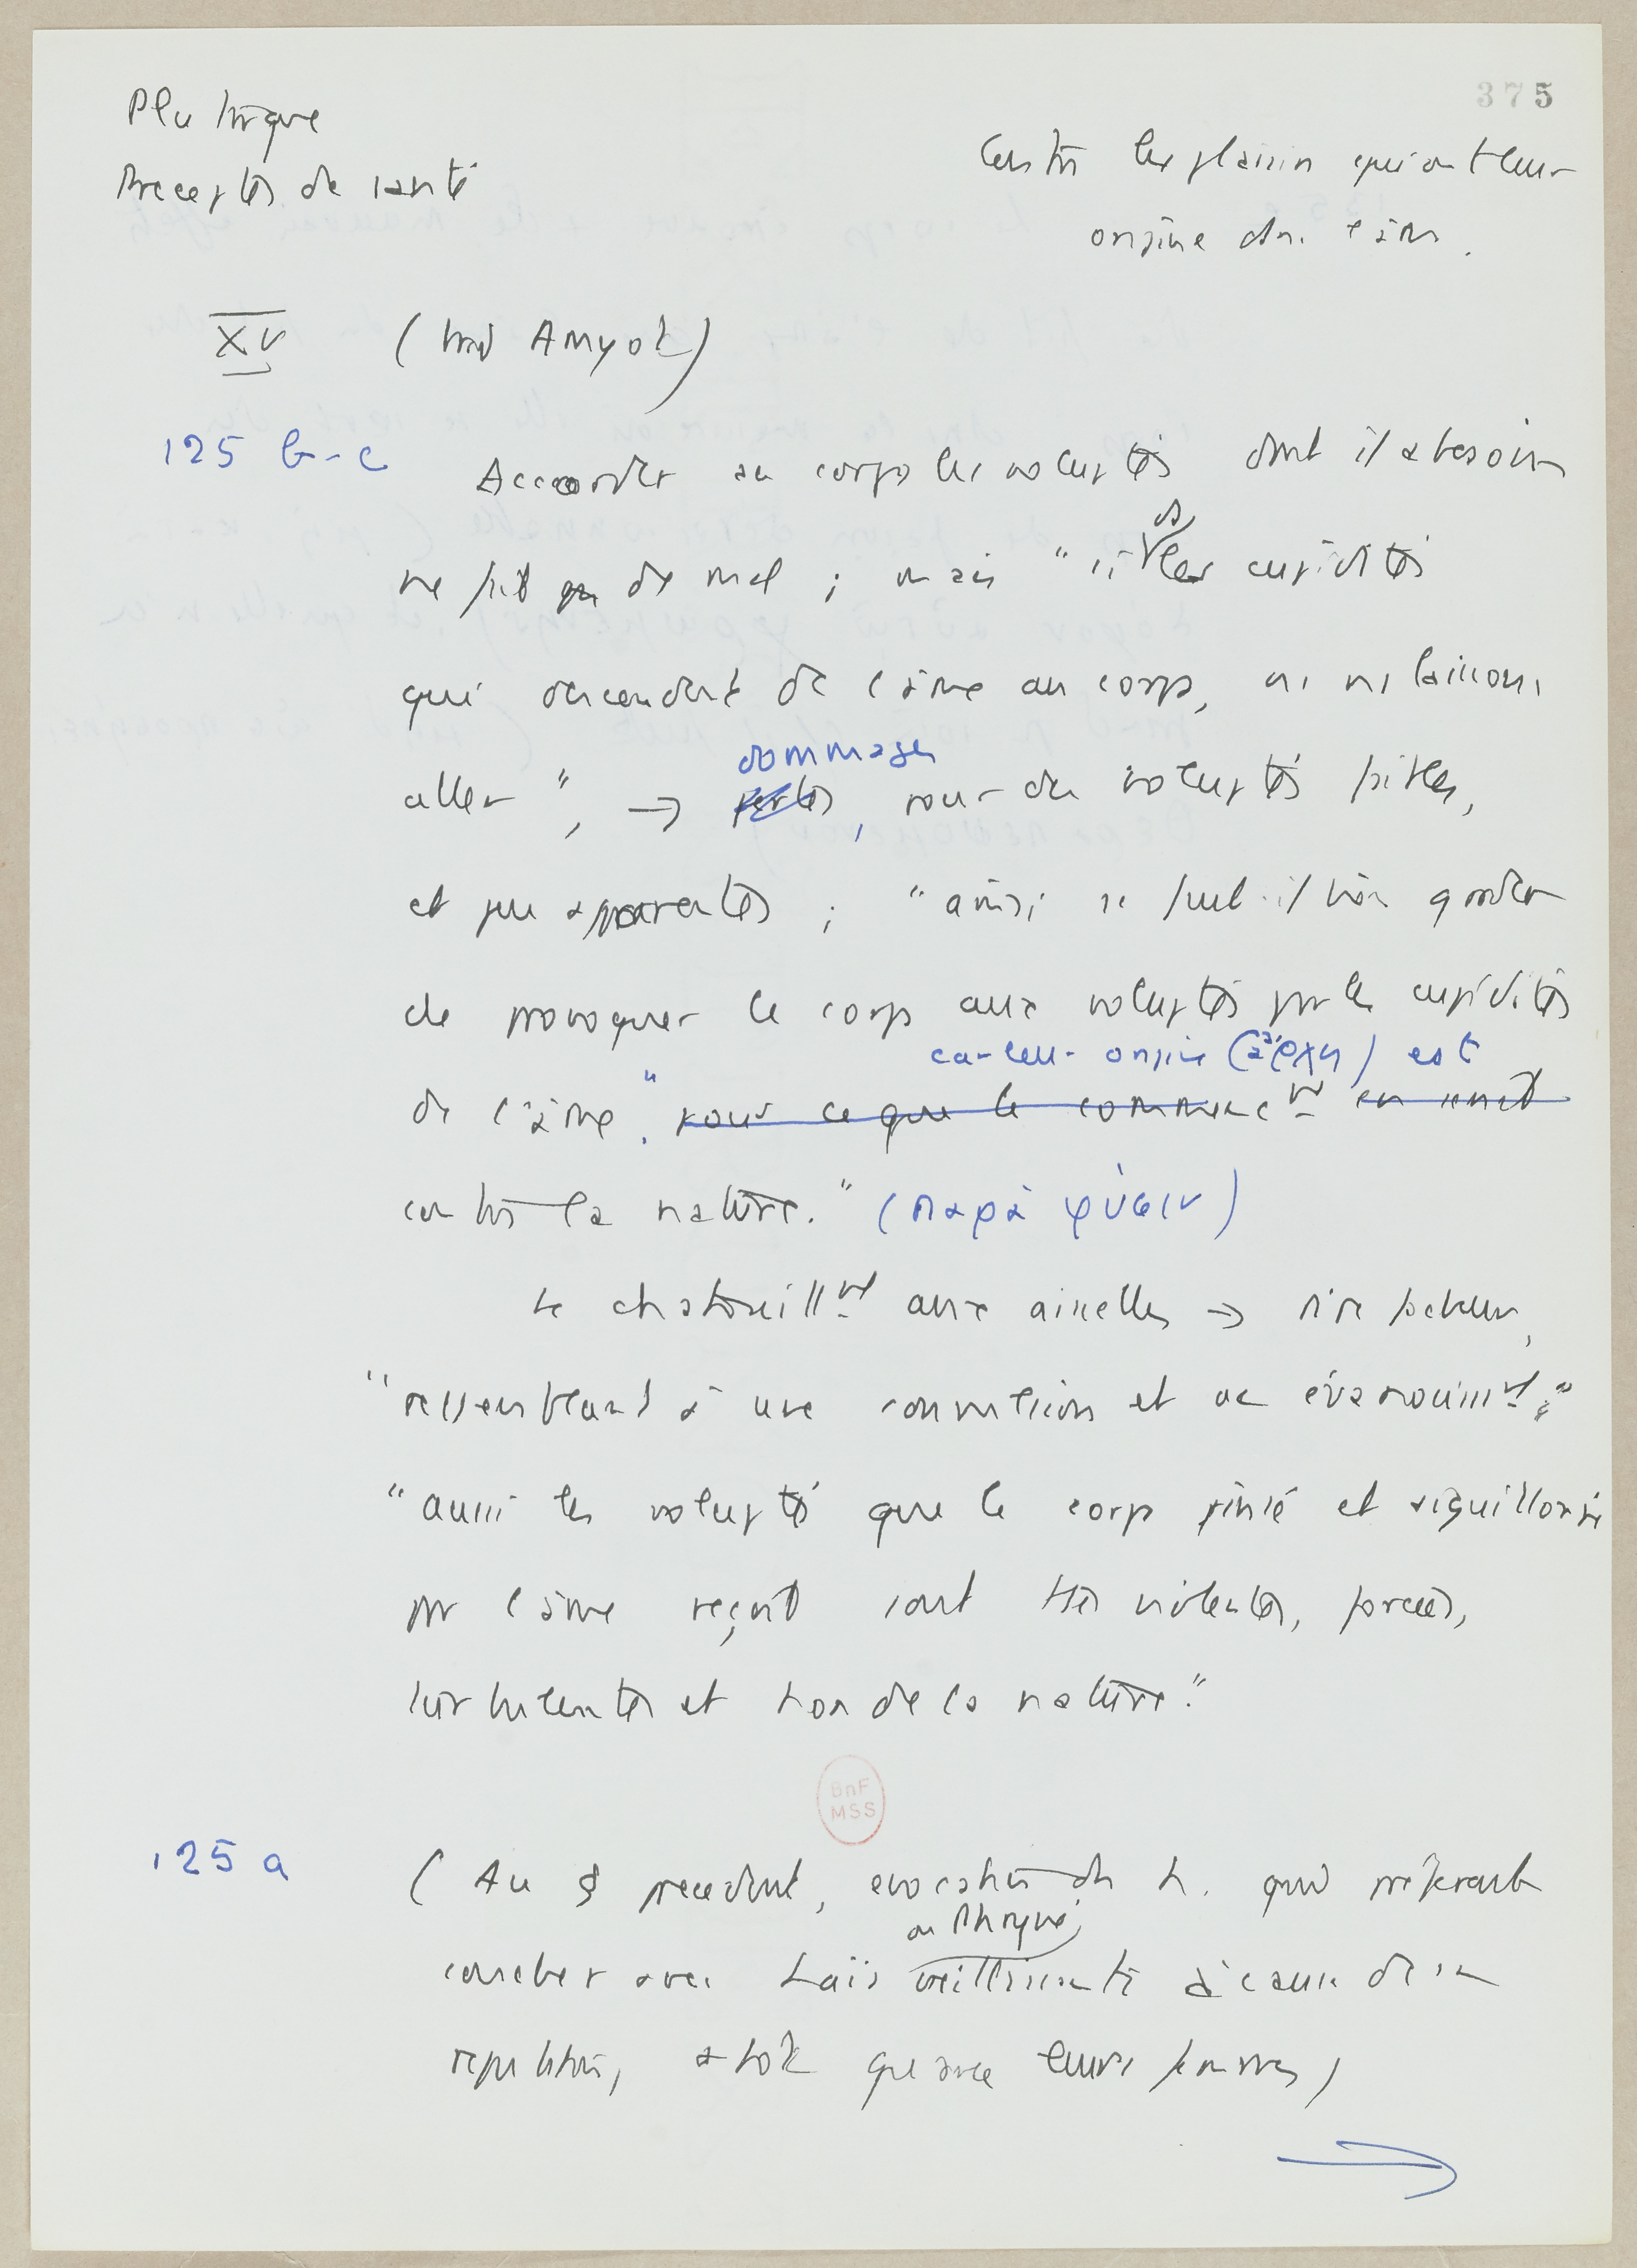 375
Plutarque
Preceptes de santé
Contre les plaisirs qui ont leur
origine dns l'âme.
XV (trad Amyot)
125 b-c Accorder au corps les voluptés dont il a besoin
ne fait de mal ; mais "si des cupidités
qui descendent de l'âme au corps, ns ns laissons
aller", → dommages, pour des voluptés faibles,
et peu apparentes ; "ainsi se faut-il bien garder
de provoquer le corps aux voluptés par les cupidités
car leur origine (ἀρχή) est
de l'âme". pour ce que le commencnt en seroit
contre la nature." (παρὰ φύσιν)
Le chatouillnt aux aisselles → rire facheux,
"ressemblant à une convulsion et ac évanouissnt;"
"aussi les voluptés que le corps pinsé et aiguillonné
par l'âme reçoit sont très violentes, forcées,
turbulentes et hors de la nature".
BnF
MSS
125 a (Au § precedent, evocation des h. qui préférent
ou Phryné
coucher avec Laïs vieillissante à cause de sa
reputation, plutôt qu'avec leurs femmes)